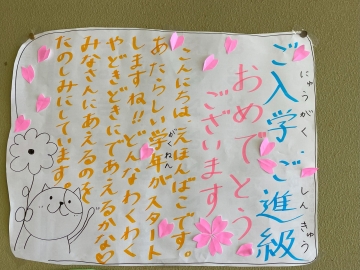 ご入学・ご進級
にゅうがく しんきゅう
おめでとう
ございます
こんにちは、えほんばこです。
あたらしい学年がスタート
がくねん
しますね!! どんなわくわく
やどきどきにであえるかな♡
みなさんにあえるのを
たのしみにしています。